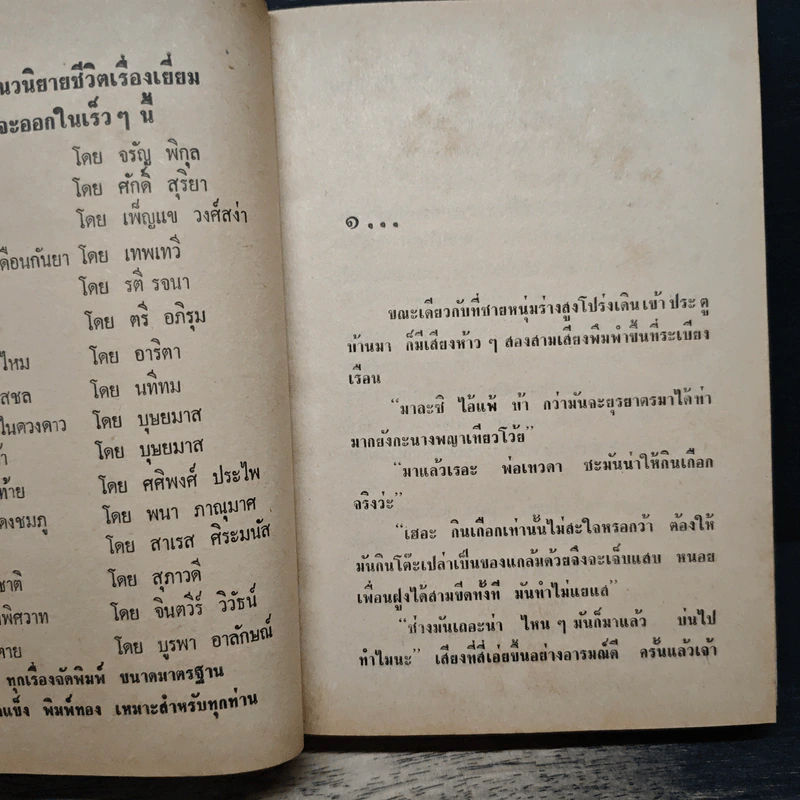 นวนิยายชีวิตเรื่องเยี่ยม
จะออกในเร็วๆ นี้
โดย จรัญ พิกุล
โดย ศักดิ์ สุริยา
โดย เพ็ญแข วงศ์สง่า
ดือนกันยา โดย เทพเทวี
โดย รตี รจนา
โดย ตรี อภิรุม
ไหม โดย อาริตา
สชล โดย นทีทม
ในดวงดาว โดย บุษยมาส
า โดย บุษยมาส
ท้าย โดย ศศิพงศ์ ประไพ
ดงชมภู โดย พนา ภาณุมาศ
โดย สาเรส ศิระมนัส
ชาติ โดย สุภาวดี
พิศวาท โดย จินตวีร์ วิวัธน์
ตาย โดย บูรพา อาลักษณ์
ทุกเรื่องจัดพิมพ์ ขนาดมาตรฐาน
แข็ง พิมพ์ทอง เหมาะสำหรับทุกท่าน
๑...
ขณะเดียวกับที่ชายหนุ่มร่างสูงโปร่งเดินเข้า ประตู
บ้านมา ก็มีเสียงห้าวๆ สองสามเสียงพึมพำขึ้นที่ระเบียง
เรือน
“มาละซิ ไอ้แพ้ ข้า กว่ามันจะยุรยาตรมาได้ท่า
มากยังกะนางพญาเทียวโว้ย”
“มาแล้วเรอะ พ่อเทวดา ชะมันน่าให้กินเกือก
จริงว่ะ”
“เฮอะ กินเกือกเท่านั้นไม่สะใจหรอกว้า ต้องให้
มันกินโต๊ะเปล่าเป็นของแกล้มด้วยจึงจะเจ็บแสบ หนอย
เพื่อนฝูงได้สามขีดทั้งที มันทำไม่แยแส”
“ช่างมันเถอะน่า ไหนๆ มันก็มาแล้ว บ่นไป
ทำไมนะ” เสียงที่สี่เอ่ยขึ้นอย่างอารมณ์ดี ครั้นแล้วเจ้า